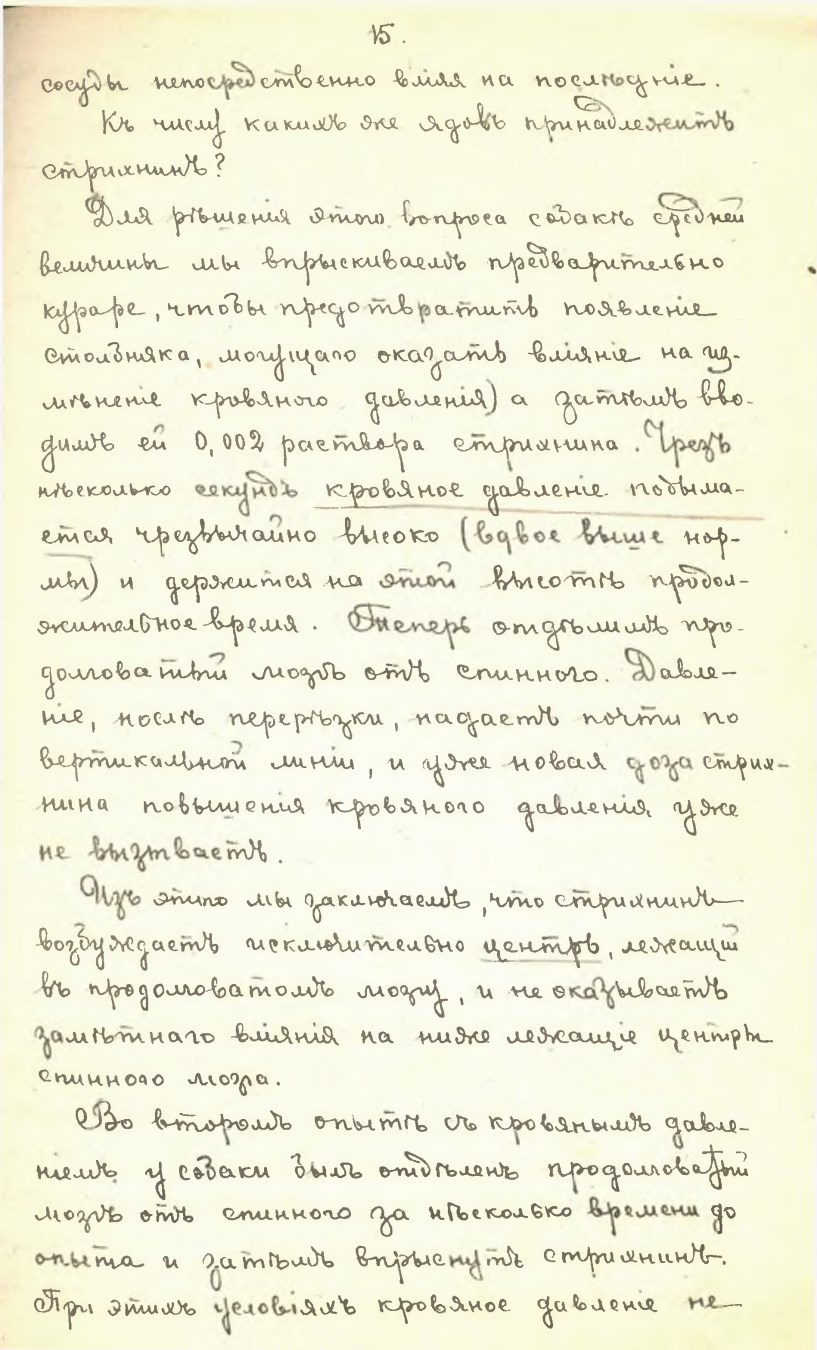 15.
сосуды непосредственно влiяя на послѣднiе.
Къ числу какихъ же ядовъ принадлежитъ
стрихнинъ?
Для рѣшенiя этого вопроса собакѣ средней
величины мы впрыскиваемъ предварительно
кураре, чтобы предотвратить появленiе
столбняка, могущаго оказать влiянiе на из-
мѣненiе кровяного давленiя) а затѣмъ вво-
димъ ей 0,002 раствора стрихнина. Чрезъ
нѣсколько секундъ кровяное давленiе подыма-
ется чрезвычайно высоко (вдвое выше нор-
мы) и держится на этой высотѣ продол-
жительное время. Теперь отдѣлимъ про-
долговатый мозгъ отъ спинного. Давле-
нiе, послѣ перерѣзки, падаетъ почти по
вертикальной линiи, и уже новая доза стрих-
нина повышенiя кровяного давленiя уже
не вызываетъ.
Изъ этого мы заключаемъ, что стрихнинъ
возбуждаетъ исключительно центръ, лежащiй
въ продолговатомъ мозгу, и не оказываетъ
замѣтнаго влiянiя на ниже лежащiе центры
спинного мозга.
Во второмъ опытѣ съ кровянымъ давле-
нiемъ у собаки былъ отдѣленъ продолговатый
мозгъ отъ спинного за нѣсколько времени до
опыта и затѣмъ впрыснутъ стрихнинъ.
При этихъ условiяхъ кровяное давленiе не